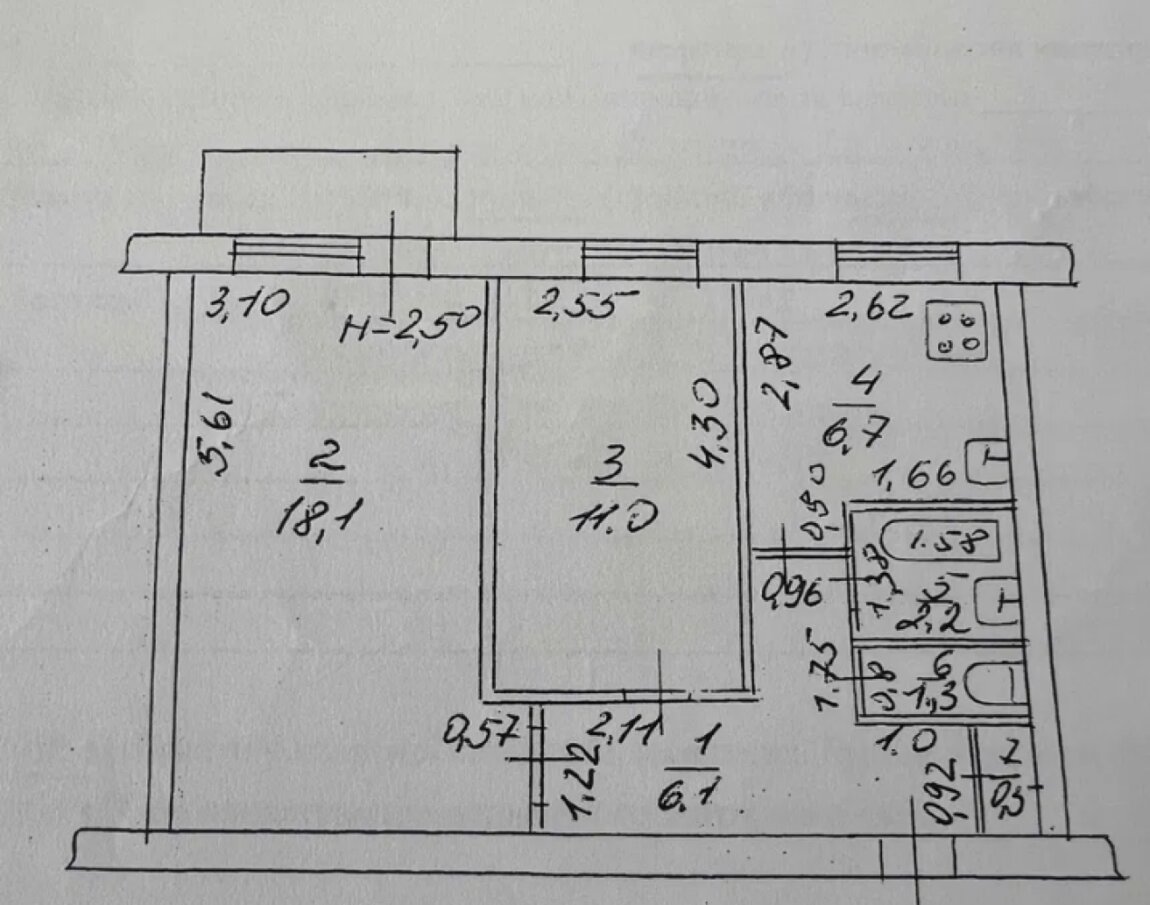 3,10
H=2,50
2,55
2,62
5,61
2
18,1
3
11.0
4,30
2,87
4
6,7
1,66
0,50
0,96
1.58
1,38
5
2,2
1.75
0,8
6
1,3
1.0
0,57
2,11
1,22
1
6,1
0,92
7